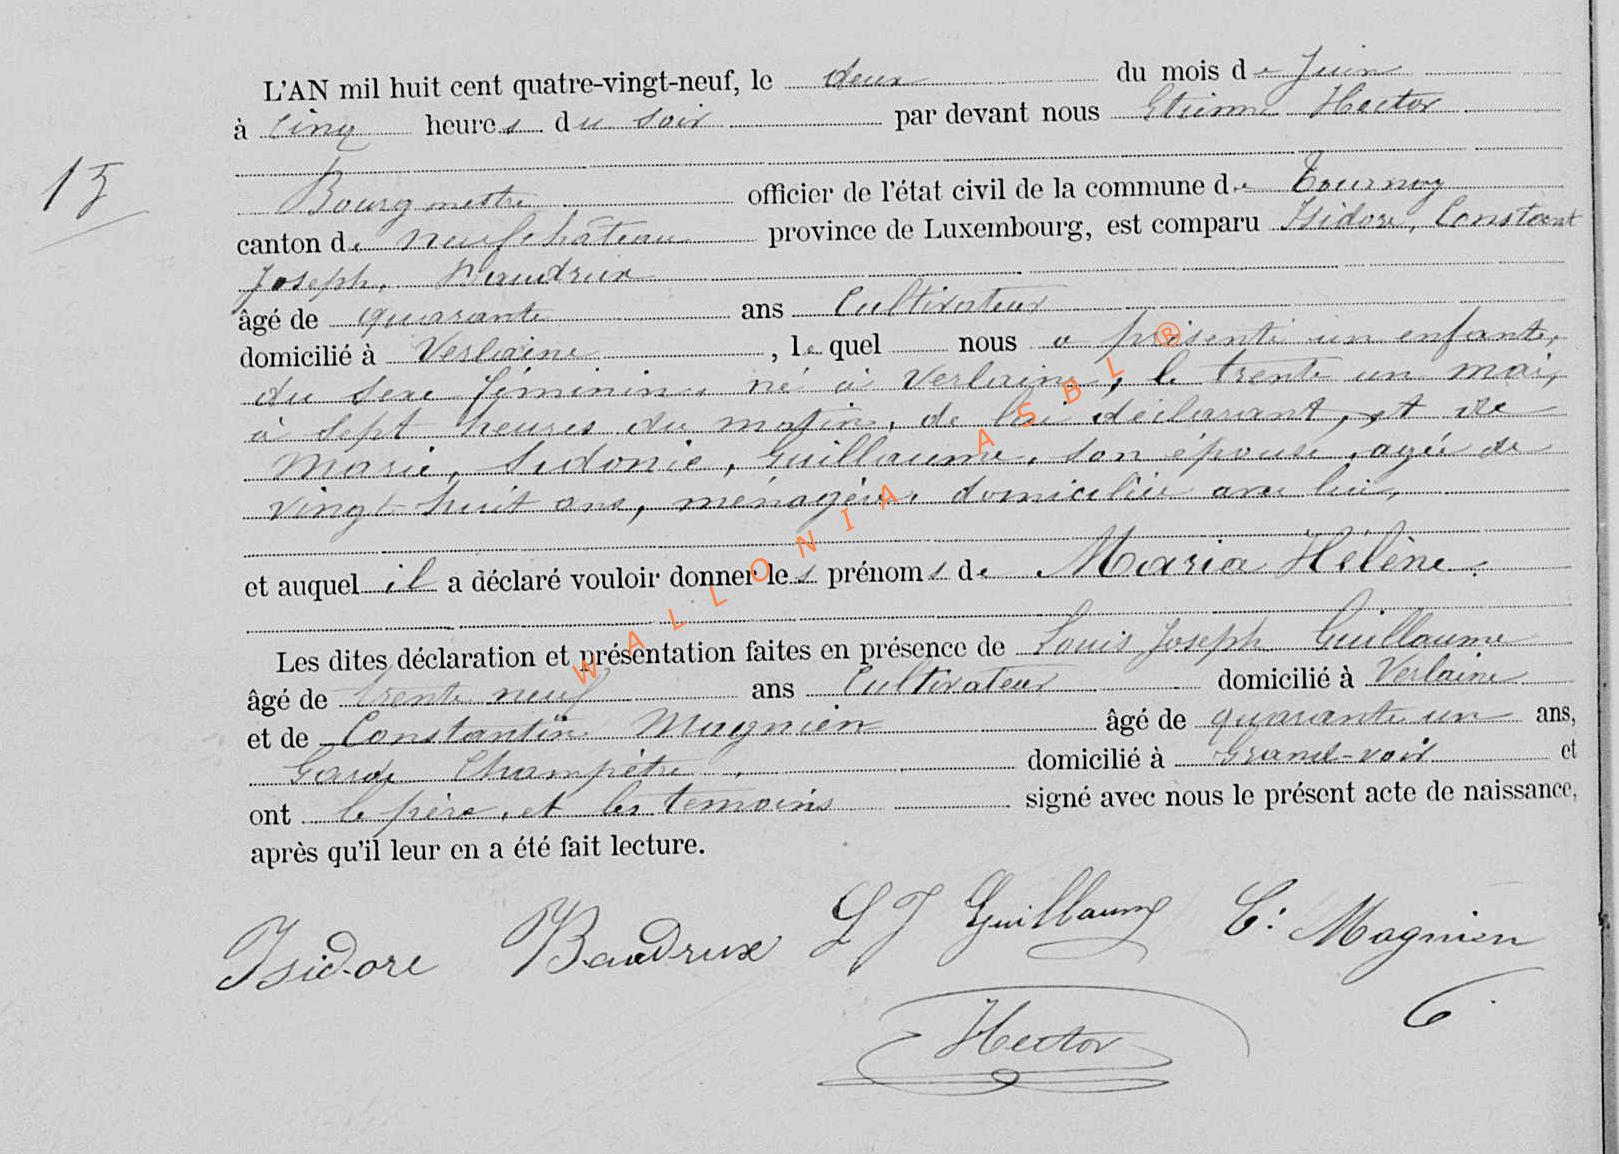 L'AN mil huit cent quatre-vingt-neuf, le deux du mois de Juin
à cinq heures du soir par devant nous Etienne Hector
15
Bourgmestre officier de l'état civil de la commune de Tournay
canton de Neufchâteau province de Luxembourg, est comparu Isidore, Constant
Joseph, Baudrux
âgé de quarante ans Cultivateur
domicilié à Verlaine, le quel nous a présenté un enfant,
du sexe féminin, né à Verlaine, le trente un mai,
à sept heures du matin, de lui déclarant, et de
Marie, Sidonie, Guillaume, son épouse, agée de
vingt huit ans, ménagère, domiciliée avec lui,
et auquel il a déclaré vouloir donner les prénoms de Maria Hélène.
Les dites déclaration et présentation faites en présence de Louis Joseph Guillaume
âgé de trente neuf ans Cultivateur domicilié à Verlaine
et de Constantin Magnien âgé de quarante un ans,
Garde Champêtre, domicilié à Grand-voir et
ont le père, et les témoins signé avec nous le présent acte de naissance,
après qu'il leur en a été fait lecture.
Isidore Baudrux L J Guillaume C: Magnien
Hector
WALLONIA ASBL ®